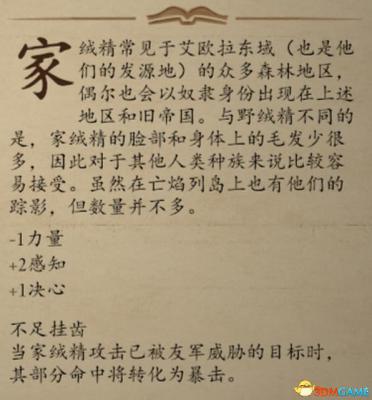 家绒精常见于艾欧拉东域（也是他
们的发源地）的众多森林地区，
偶尔也会以奴隶身份出现在上述
地区和旧帝国。与野绒精不同的
是，家绒精的脸部和身体上的毛发少很
多，因此对于其他人类种族来说比较容
易接受。虽然在亡焰列岛上也有他们的
踪影，但数量并不多。
-1力量
+2感知
+1决心
不足挂齿
当家绒精攻击已被友军威胁的目标时，
其部分命中将转化为暴击。
3DMGAME